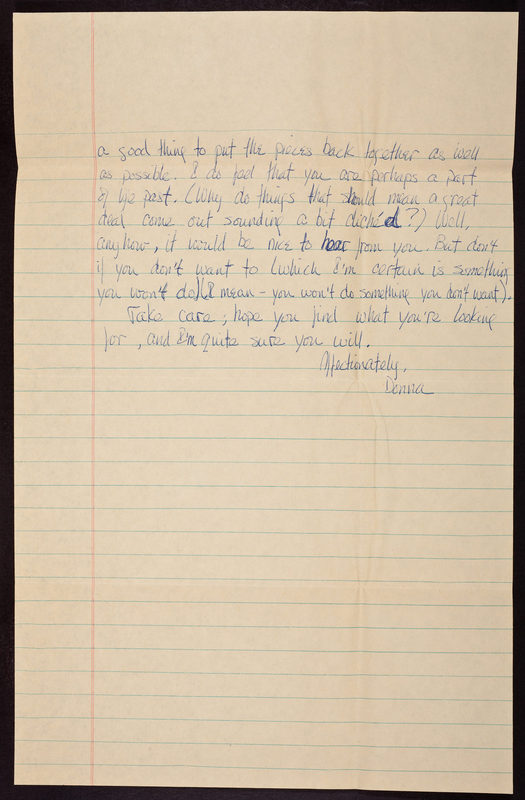 a good thing to put the pieces back together as well
as possible. I do feel that you are perhaps a part
of life past. (Why do things that should mean a great
deal come out sounding a bit clichéd?) Well,
anyhow, it would be nice to hear from you. But don't
if you don't want to (which I'm certain is something
you won't do)(I mean - you won't do something you don't want).
Take care, hope you find what you're looking
for, and I'm quite sure you will.
Affectionately,
Donna